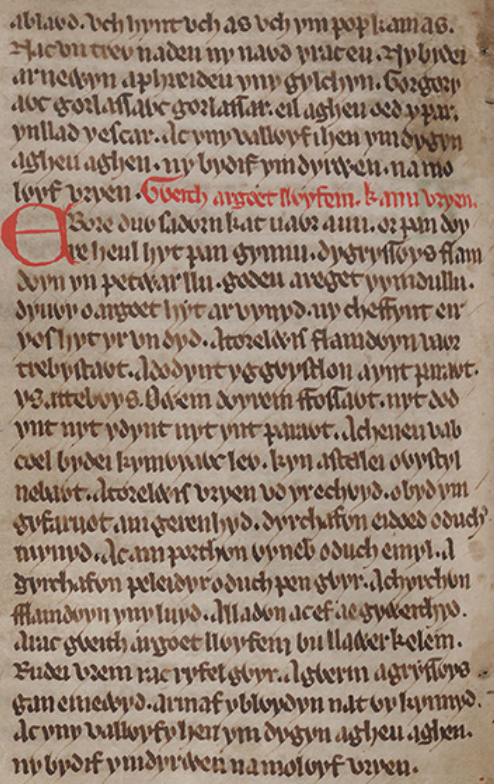 ablawd. vch hynt vch as vch ym pop kamas.
Nac vn trew na deu ny nawd y racceu. Ny bydei
ar newyn a phreideu yny gylchyn. Gorgory
awc gorlassawc gorlassar. eil agheu oed y par.
yn llad y escar. Ac yny vallwyf ihen ym dygyn
agheu agheu. ny bydif ym dyrwen. na mo
lwyf vryen. Gweith argoet llwyfein. kanu vryen.
E Bore duw sadwrn kat uawr a uu. or pan dwy
re heul hyt pan gynnu. dygrysswys flam
dwyn yn petwar llu. godeu a reget y ymdullu.
dyuwy o argoet hyt arvynyd. ny cheffynt eir
yos hyt yr vn dyd. Atorelwis flamdwyn vawr
trebystawt. A dodynt yg gwystlon a ynt parawt.
ys attebwys. Owein dwyrein ffossawt. nyt dod
ynt nyt ydynt nyt ynt parawt. A cheneu vab
coel bydei kymwyawc lew. kyn as talei o wystyl
nebawt. Atorelwis vryen vd yr echwyd. o byd ym
gyfaruot am gerenhyd. dyrchafwn eidoed oduch
mynyd. Ac am porthwn wyneb oduch emyl. A
dyrchafwn peleidyr oduch pen gwyr. A chyrchwn
fflamdwyn yny luyd. A lladwn ac ef ae gyweithyd.
A rac gweith argoet llwyfein bu llawer kelein.
Rudei vrein rac ryfel gwyr. A gwerin a grysswys
gan einewyd. armaf y blwydyn nat wy kynnyd.
Ac yny vallwyf y hen ym dygyn agheu agheu.
ny bydif ym dyrwen na molwyf vryen.